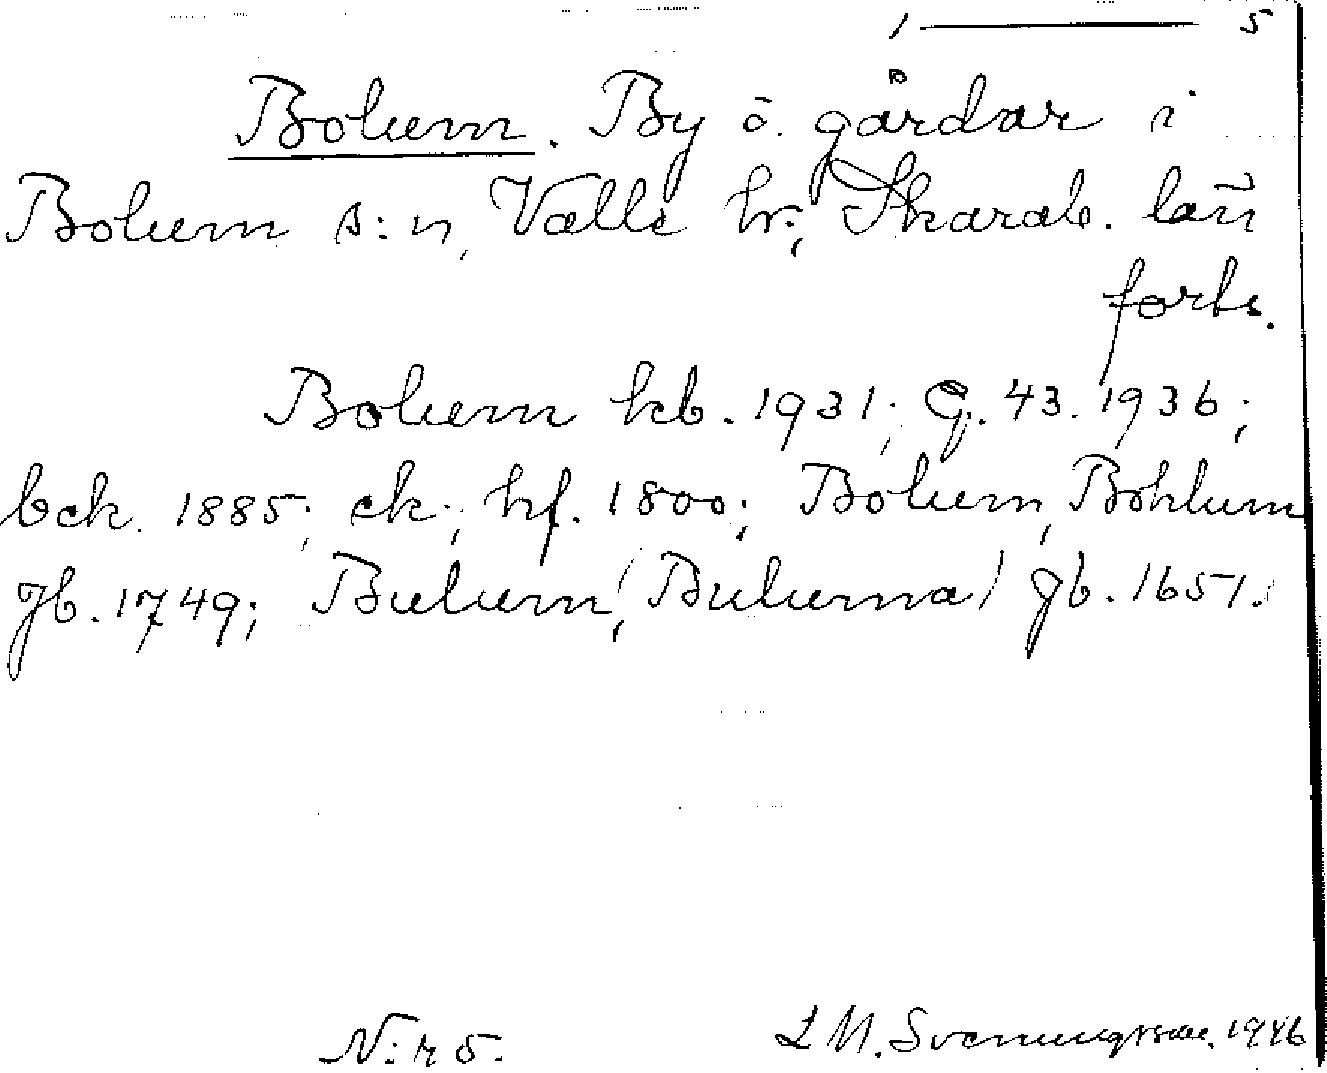 1 — 5
Bolum. By o. gårdar i
Bolum s:n, Valle hr; Skarab. län
forts.
Bolum kb. 1931; G. 43. 1936;
bck. 1885; ek; hf. 1800; Bolum, Bohlum
Jb. 1749; Bulum, /Buluma/ Jb. 1651.
N:r 5.
L M. Svenungsson. 1946